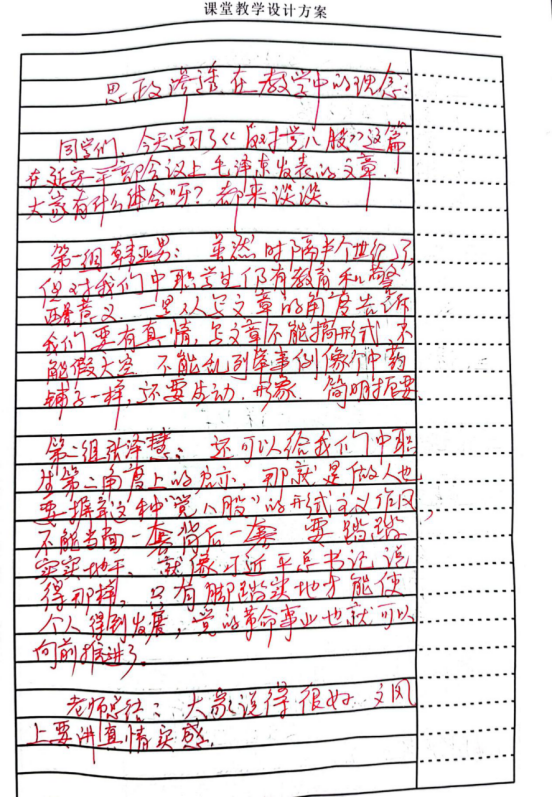 课堂教学设计方案
思政渗透在教学中的理念:
同学们,今天学习了《反对党八股》这篇
在延安干部会议上毛泽东发表的文章.
大家有什么体会呀?都来谈谈.
第一组韩亚男:虽然时隔半个世纪了,
但对我们中职学生仍有教育和警
醒意义.一是从写文章的角度告诉
我们要有真情,写文章不能搞形式不
能假大空 不能乱列举事例像个中药
铺子一样,还要生动.形象.简明扼要.
第二组张泽慧:还可以给我们中职
生第二角度上的启示,那就是做人也
要摒弃这种"党八股"的形式主义作风,
不能当面一套背后一套 要踏踏
实实地干.就像习近平总书记说
得那样,只有脚踏实地才能使
个人得到发展,党的革命事业也就可以
向前推进了.
老师总结:大家说得很好.文风
上要讲真情实感.